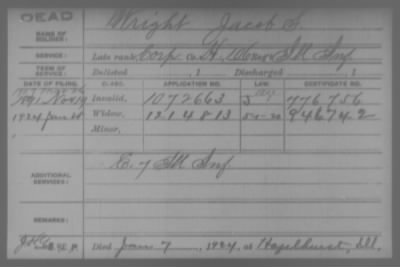 DEAD
NAME OF SOLDIER: Wright Jacob S.
SERVICE: Late rank, Corp Co. H, Reg't Ill Inf
TERM OF SERVICE: Enlisted , 1 Discharged , 1
DATE OF FILING. CLASS. APPLICATION NO. LAW. CERTIFICATE NO.
1891 Nov 19 Invalid, 1072663 776756
1924 Jan 28 Widow, 1214813 5-1-20 946742
Minor,
ADDITIONAL SERVICES: E. 7 Ill Inf.
REMARKS:
Died Jan 7 , 1924, at Hazelhurst, Ill.